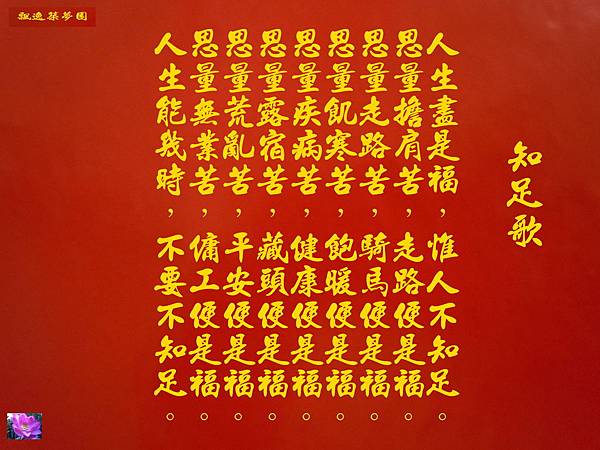 飄逸築夢園
知足歌
人生盡是福，惟人不知足。
思量擔肩苦，走路便是福。
思量走路苦，騎馬便是福。
思量飢寒苦，飽暖便是福。
思量疾病苦，健康便是福。
思量露宿苦，藏頭便是福。
思量荒亂苦，平安便是福。
思量無業苦，傭工便是福。
人生能幾時，不要不知足。